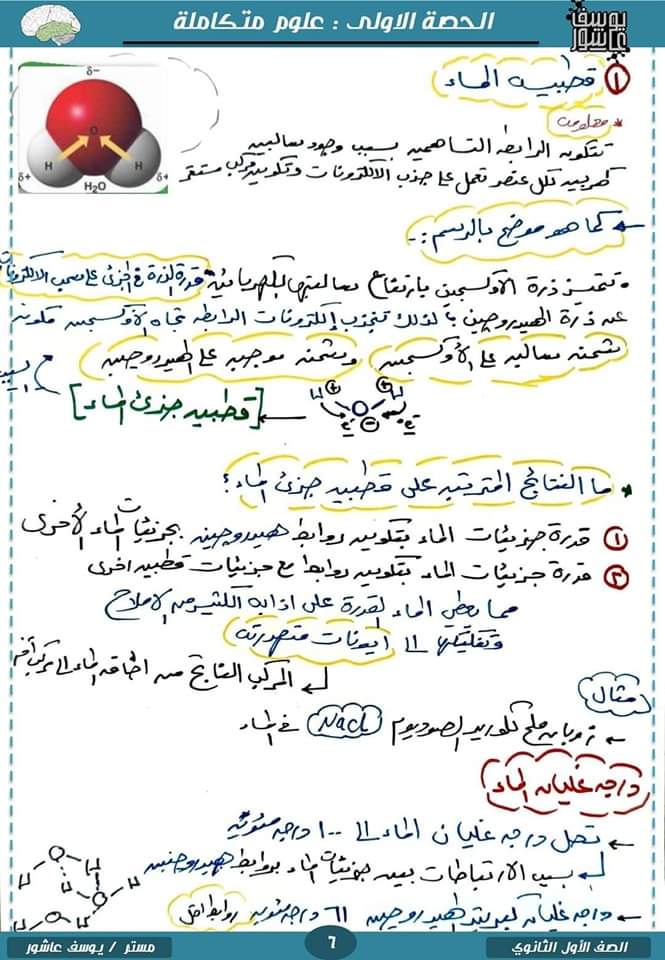 الحصة الاولى : علوم متكاملة
يوسف عاشور
① قطبيه الماء
* معلومه
تتكون الرابطه التساهميه بسبب وجود سالبيه
كهربيه لكل عنصر تعمل على جذب الالكترونات وتكوين مركب مستقر
δ-
O
H H
δ+ δ+
H₂O
← كما هو موضح بالرسم :-
• تتميز ذرة الأوكسجين بارتفاع سالبيتها الكهربائيه
قدرة الذرة فى الجزئ على سحب الالكترونات
عن ذرة الهيدروجين ، لذلك تنجذب إلكترونات الرابطه تجاه الأوكسجين مكونه
شحنه سالبه على الأوكسجين وشحنه موجبه على الهيدروجين
H + + H
O
e - e
← [قطبيه جزئ الماء]
* ما النتائج المترتبه على قطبيه جزئ الماء ؟
① قدرة جزيئات الماء بتكوين روابط هيدروجينيه بجزيئات الماء الأخرى
② قدرة جزيئات الماء بتكوين روابط مع جزيئات قطبيه اخرى
مما يعطى الماء القدرة على اذابه الكثير من الاملاح
وتفكيكها الى ايونات متصدرته
المركب الناتج من اضافه الماء الى مركب آخر
مثال
← ذوبان ملح كلوريد الصوديوم NaCl فى الماء
درجه غليان الماء
← تصل درجه غليان الماء الى ١٠٠ درجه مئويه
بسبب الارتباطات بين جزيئات الماء بروابط هيدروجينيه
← درجه غليان كبريتيد الهيدروجين ٦١ درجه مئويه روابط اقل
الصف الأول الثانوي
٦
مستر / يوسف عاشور